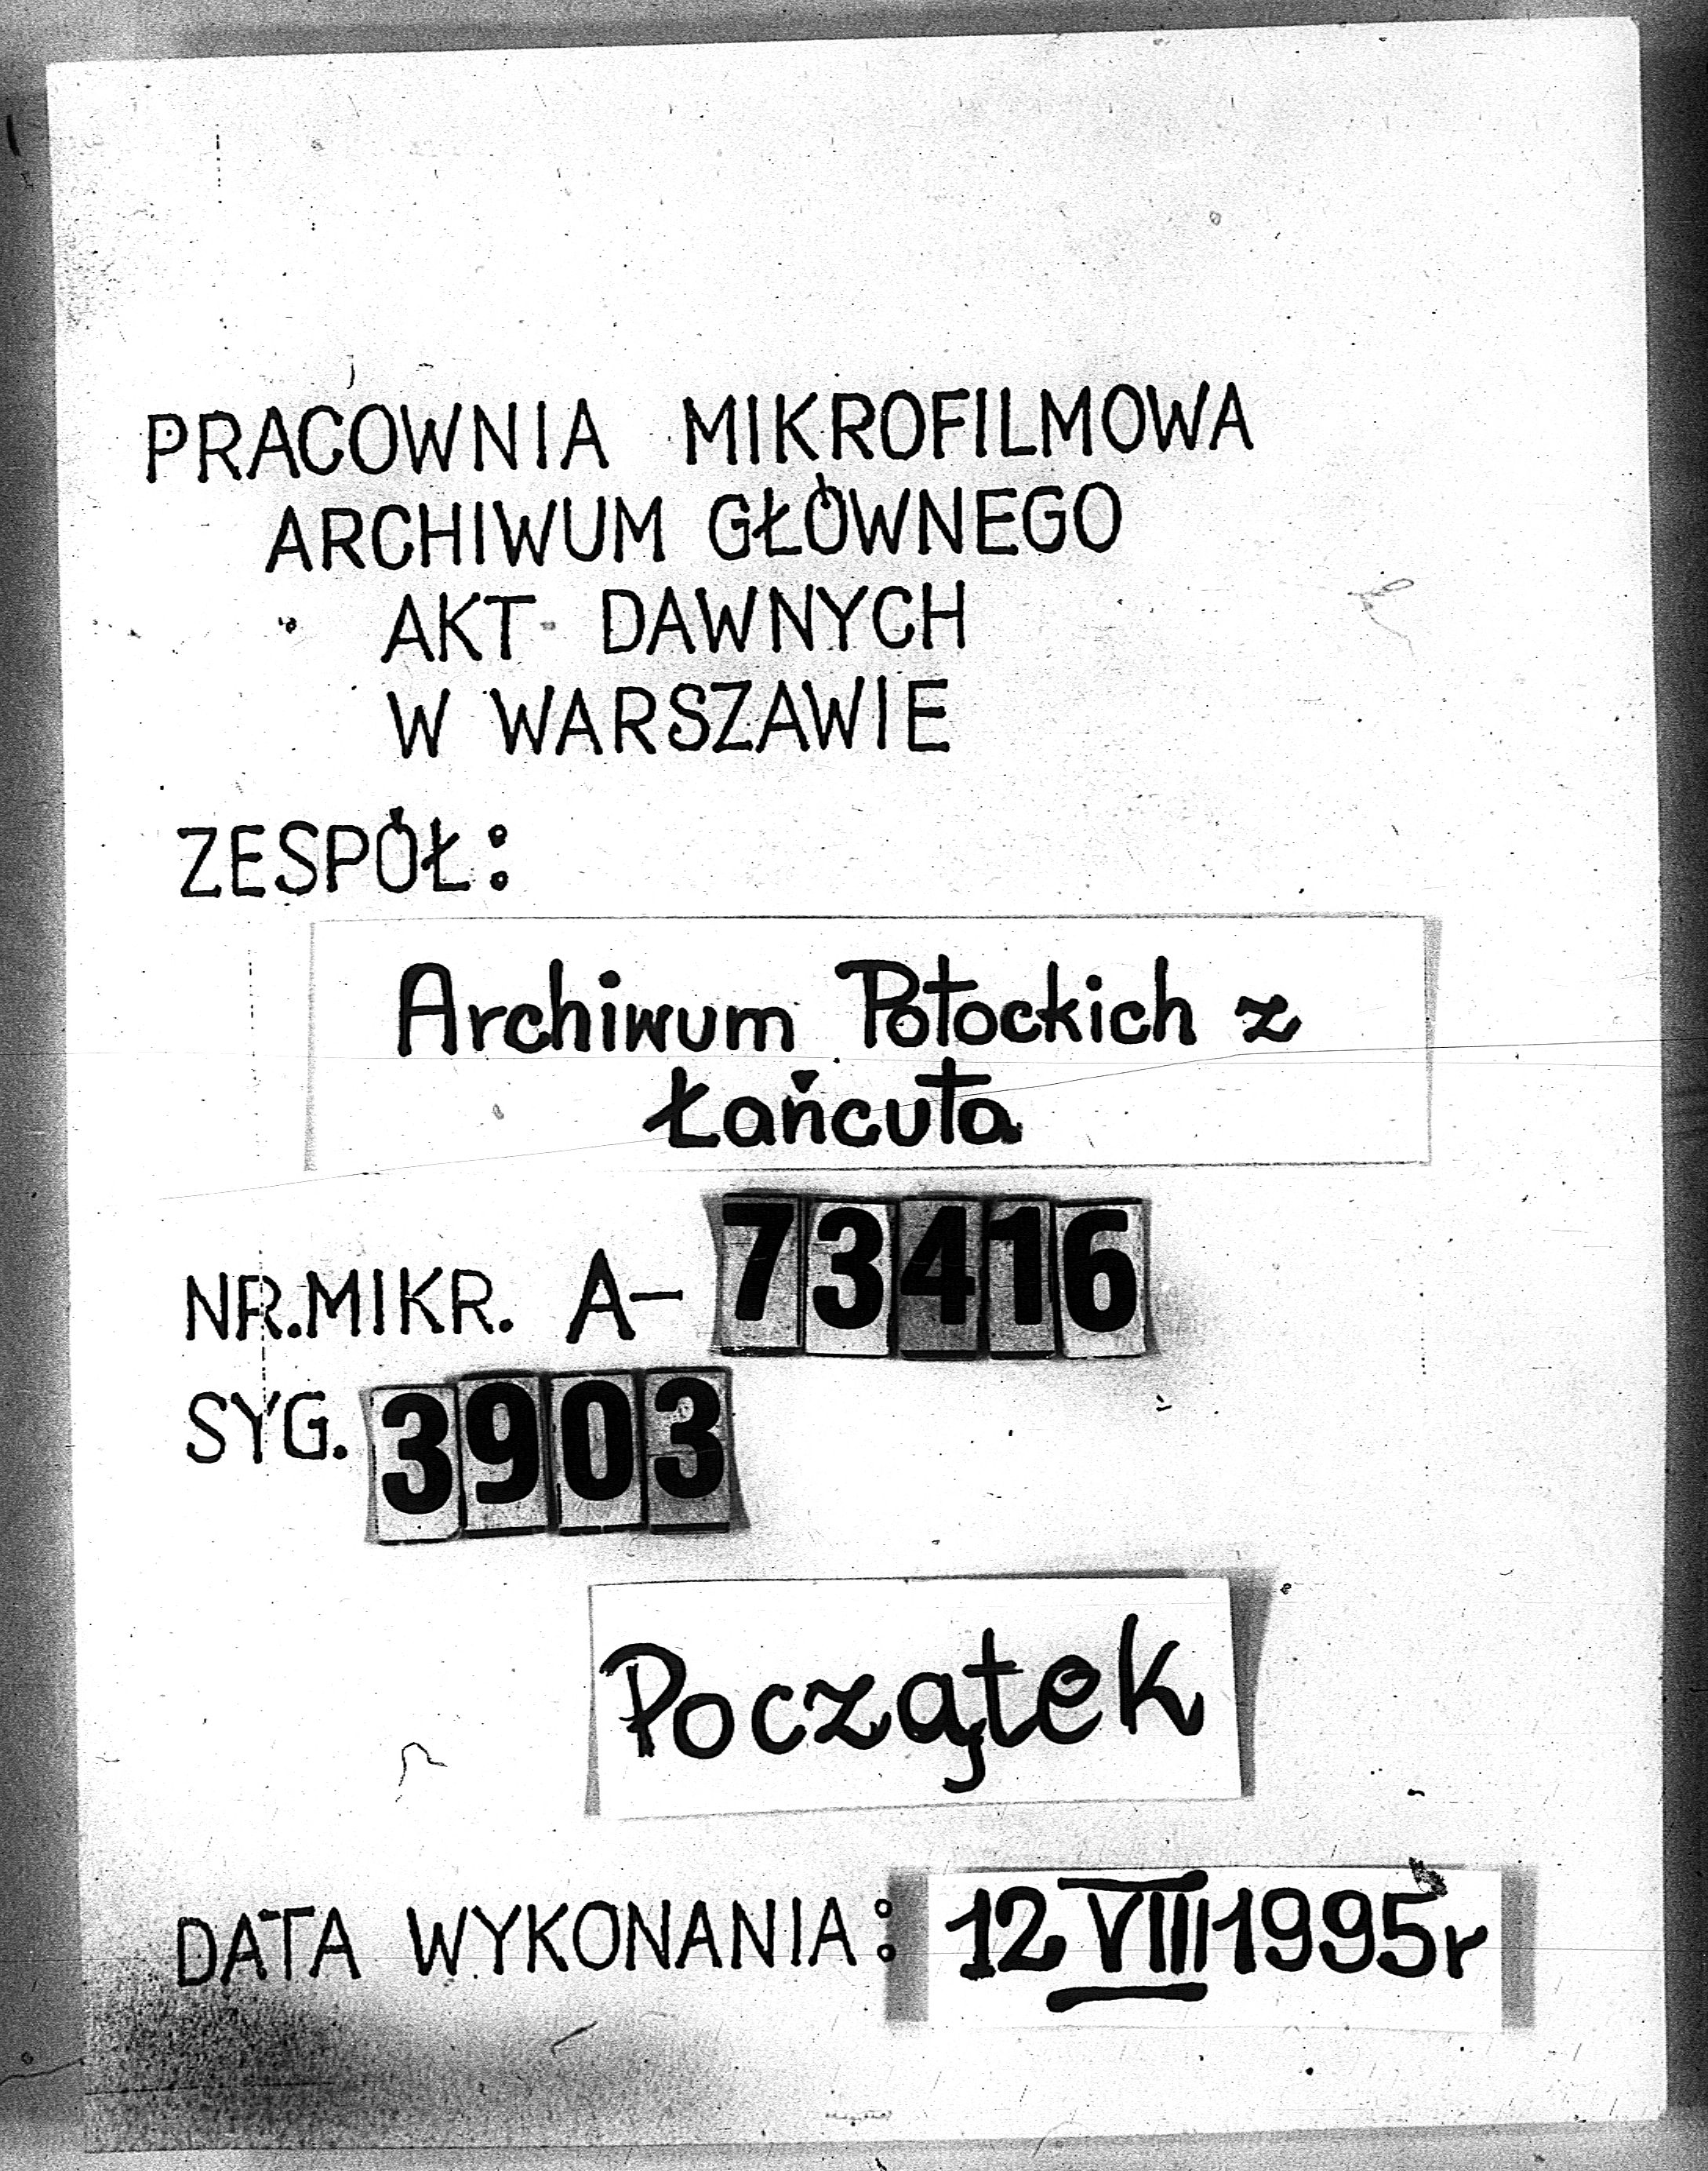 PRACOWNIA MIKROFILMOWA
ARCHIWUM GŁÓWNEGO
AKT DAWNYCH
W WARSZAWIE
ZESPÓŁ:
Archiwum Potockich z
Łańcuta
NR.MIKR. A- 73416
SYG. 3903
Początek
DATA WYKONANIA: 12 VIII 1995r